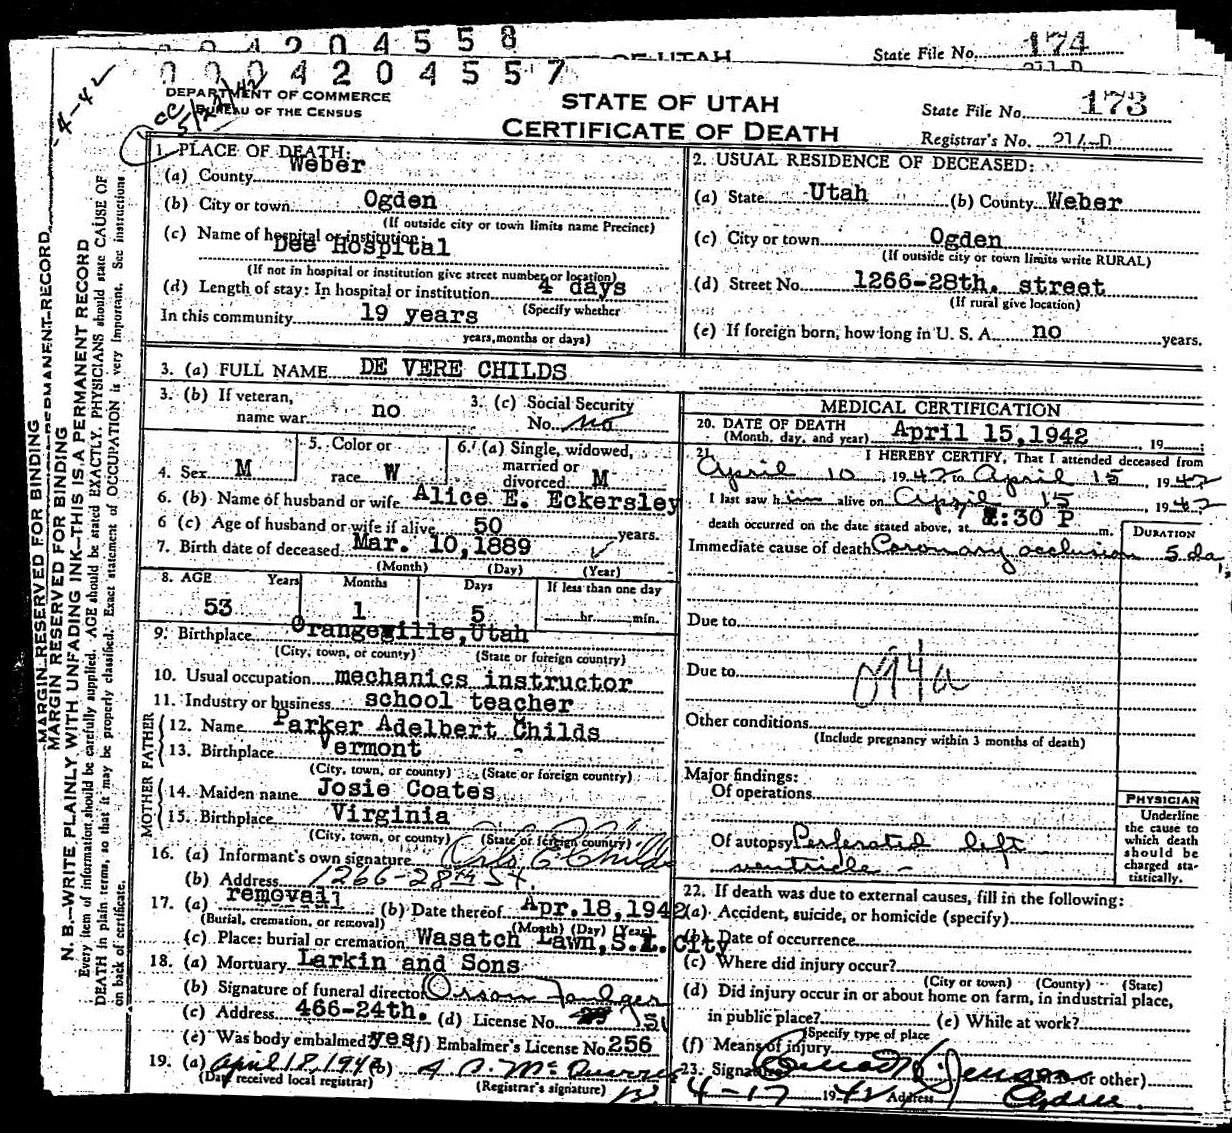 0 0 0 4 2 0 4 5 5 8
OF UTAH
State File No. 174
0 0 0 4 2 0 4 5 5 7
DEPARTMENT OF COMMERCE
BUREAU OF THE CENSUS
STATE OF UTAH
CERTIFICATE OF DEATH
State File No. 173
Registrar's No. 214-D
MARGIN RESERVED FOR BINDING
MARGIN RESERVED FOR BINDING
N. B.—WRITE PLAINLY WITH UNFADING INK—THIS IS A PERMANENT RECORD
Every item of information should be carefully supplied. AGE should be stated EXACTLY. PHYSICIANS should state CAUSE OF
DEATH in plain terms, so that it may be properly classified. Exact statement of OCCUPATION is very important. See instructions
on back of certificate.
1. PLACE OF DEATH:
(a) County Weber
(b) City or town Ogden
(If outside city or town limits name Precinct)
(c) Name of hospital or institution:
Dee Hospital
(If not in hospital or institution give street number or location)
(d) Length of stay: In hospital or institution 4 days
In this community 19 years (Specify whether
years, months or days)
2. USUAL RESIDENCE OF DECEASED:
(a) State Utah (b) County Weber
(c) City or town Ogden
(If outside city or town limits write RURAL)
(d) Street No. 1266-28th. street
(If rural give location)
(e) If foreign born, how long in U. S. A. no years.
3. (a) FULL NAME DE VERE CHILDS
3. (b) If veteran,
name war no
3. (c) Social Security
No. no
4. Sex M
5. Color or
race W
6. (a) Single, widowed,
married or
divorced M
6. (b) Name of husband or wife Alice E. Eckersley
6 (c) Age of husband or wife if alive 50 years.
7. Birth date of deceased Mar. 10,1889
(Month) (Day) (Year)
8. AGE Years Months Days If less than one day
53 1 5 hr. min.
9. Birthplace Orangeville,Utah
(City, town, or county) (State or foreign country)
10. Usual occupation mechanics instructor
11. Industry or business school teacher
FATHER
12. Name Parker Adelbert Childs
13. Birthplace Vermont
(City, town, or county) (State or foreign country)
MOTHER
14. Maiden name Josie Coates
15. Birthplace Virginia
(City, town, or county) (State or foreign country)
16. (a) Informant's own signature E. Childs
(b) Address 1266-28th St.
17. (a) removal (b) Date thereof Apr.18,1942
(Burial, cremation, or removal) (Month) (Day) (Year)
(c) Place: burial or cremation Wasatch Lawn,S.L.City
18. (a) Mortuary Larkin and Sons
(b) Signature of funeral director Orson Foulger
(c) Address 466-24th. (d) License No.
(e) Was body embalmed? yes (f) Embalmer's License No. 256
19. (a) April 18, 1942 (b)
(Date received local registrar) (Registrar's signature)
MEDICAL CERTIFICATION
20. DATE OF DEATH
(Month, day, and year) April 15,1942, 19
21. I HEREBY CERTIFY, That I attended deceased from
April 10, 1942 to April 15, 1942
I last saw him alive on April 15 1942
death occurred on the date stated above, at :30 P m.
DURATION
Immediate cause of death Coronary occlusion 5 da
Due to
Due to 094a
Other conditions
(Include pregnancy within 3 months of death)
Major findings:
Of operations
Of autopsy Perforated left
ventricle -
PHYSICIAN
Underline
the cause to
which death
should be
charged sta-
tistically.
22. If death was due to external causes, fill in the following:
(a) Accident, suicide, or homicide (specify)
(b) Date of occurrence
(c) Where did injury occur?
(City or town) (County) (State)
(d) Did injury occur in or about home on farm, in industrial place,
in public place? (e) While at work?
(Specify type of place
(f) Means of injury
23. Signature Jenson (M.D. or other)
4-17 1942 Address Ogden